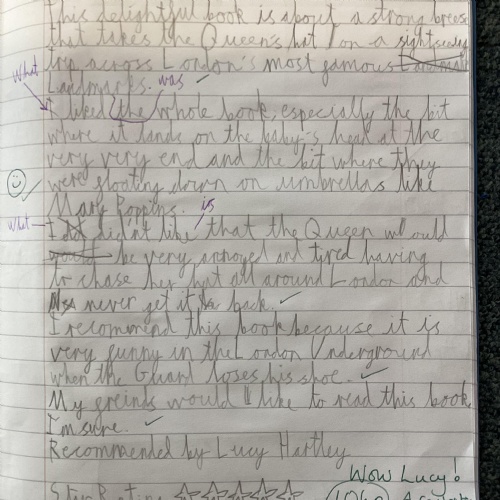 This delightful book is about a strong breeze
that takes the Queen's hat on a sightseeing
trip across London's most famous
Landmarks. was
What
I liked the whole book, especially the bit
where it lands on the baby's head at the
very very end and the bit where they
were floating down on umbrellas like
Mary Poppins. is
What I didn't like that the Queen would
be very annoyed and tyred having
to chase her hat all around London and
never get it back.
I recommend this book because it is
very funny in the London Underground
when the Guard loses his shoe.
My freinds would like to read this book
I'm sure.
Recommended by Lucy Hartley
Wow Lucy!
Star Rating